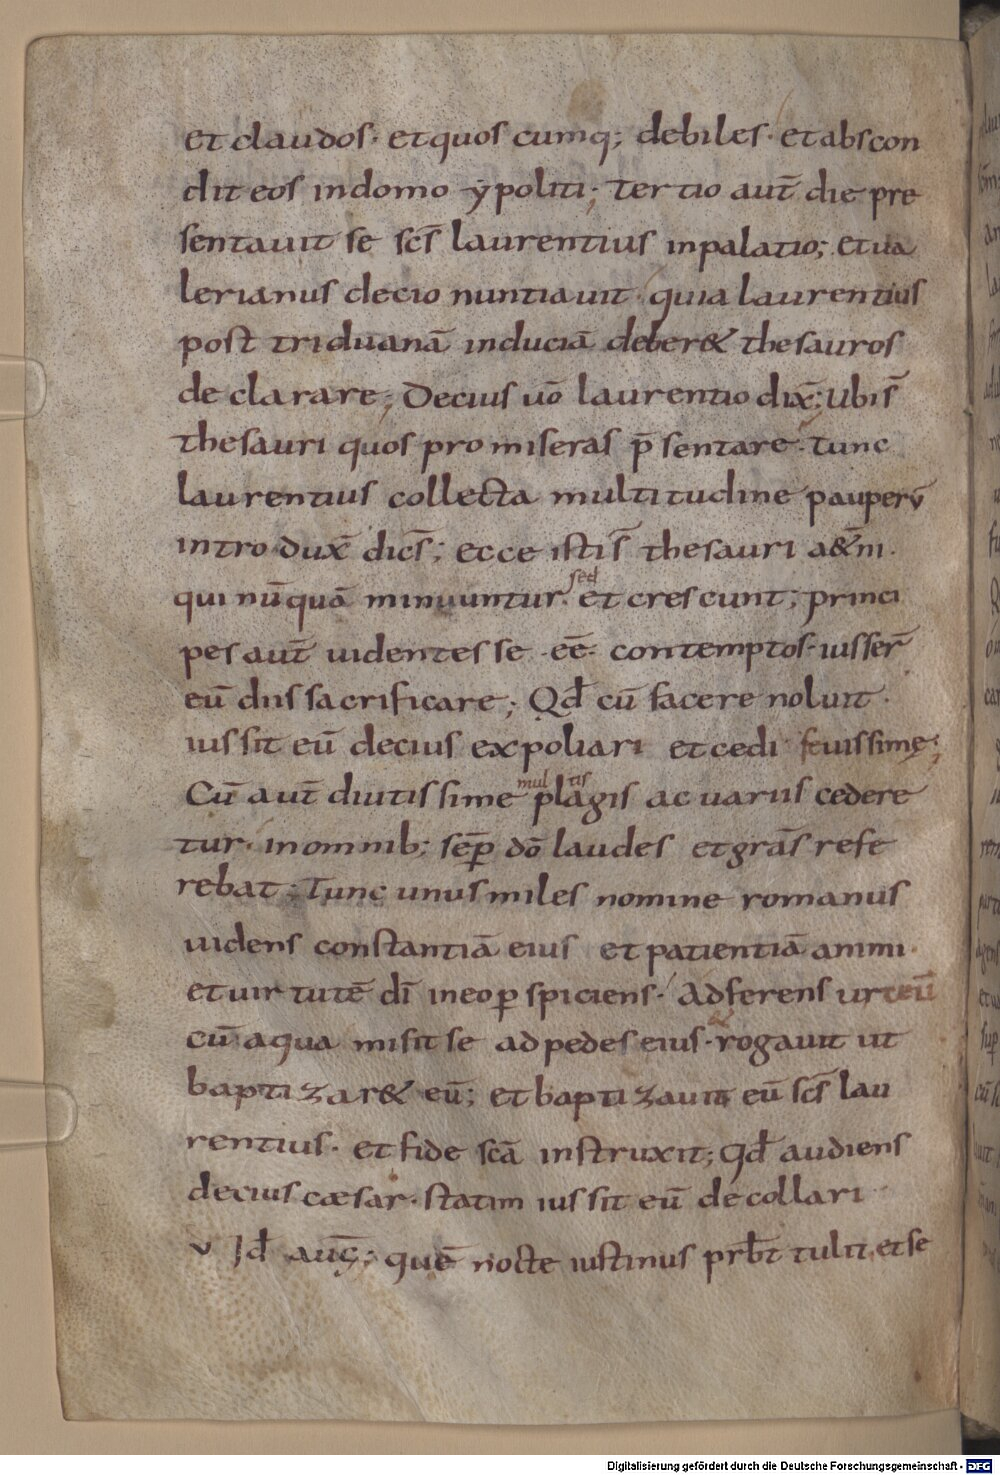 et claudos· et quos cumq; debiles· et abscon
dit eos in domo ẏpoliti; Tertio aut̄ die pre
sentauit se sc̄s laurentius in palatio; Et ua
lerianus decio nuntiauit· quia laurentius
post triduanā induciā deber& thesauros
declarare; Decius uō laurentio dix̄; Ubi s̄
thesauri quos promiseras p̄sentare· tunc
laurentius collecta multitudine pauperū
introdux̄ dic̄s; ecce isti s̄ thesauri a&̄ni·
qui nū quā minuuntur· sed et crescunt; princi
pes aut̄ uidentes se ·eē· contemptos· iusser̄
eū diis sacrificare; Qd̄ cū facere noluit·
iussit eū decius expoliari et cedi seuissimę;
Cū aut̄ diutissime mul plagis tis ac uariis cedere
tur· in omnib; sēp dō laudes et grās refe
rebat; Tunc unus miles nomine romanus
uidens constantiā eius et patientiā animi·
et uirtutē dī in eo ꝑspiciens· Adferens urceū
cū aqua misit se ad pedes eius· rogauit ut
baptizar& eū; et baptizauit eū sc̄s lau
rentius· et fide sc̄a instruxit; Qd̄ audiens
decius cæsar· statim iussit eū decollari
v Id̄ auḡ; quē nocte iustinus prb̄t tulit, et se
Digitalisierung gefördert durch die Deutsche Forschungsgemeinschaft - DFG